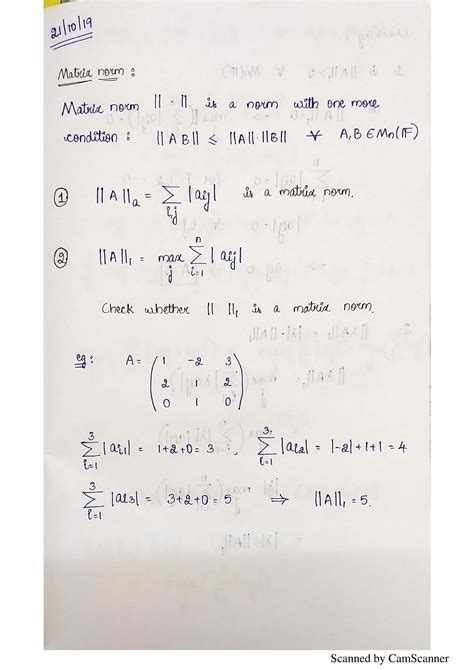 21/10/19
Matrix norm :
Matrix norm || · || is a norm with one more
condition : ||AB|| ≤ ||A||·||B|| ∀ A, B ∈ Mn(F)
① ||A||a = ∑i,j |aij| is a matrix norm.
② ||A||1 = max j ∑ n i=1 |aij|
Check whether || ||1 is a matrix norm.
eg : A = ( 1 -2 3
2 1 2
0 1 0 )
∑ 3 i=1 |ai1| = 1+2+0 = 3 . ∑ 3 i=1 |ai2| = |-2|+1+1 = 4
∑ 3 i=1 |ai3| = 3+2+0 = 5 ⇒ ||A||1 = 5.
Scanned by CamScanner